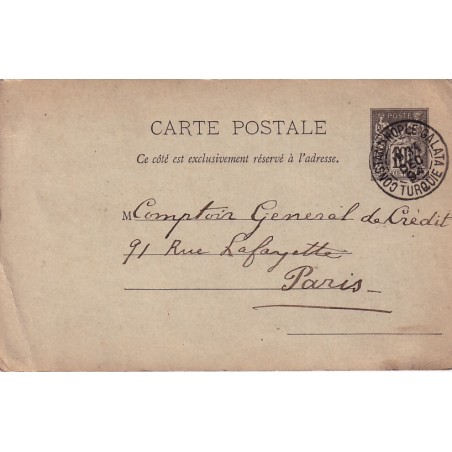 POSTE
CARTE POSTALE
CONSTANTINOPLE GALATA
DEC
TURQUIE
Ce côté est exclusivement réservé à l'adresse.
M Comptoir General de Crèdit
91 Rue Lafayette
Paris